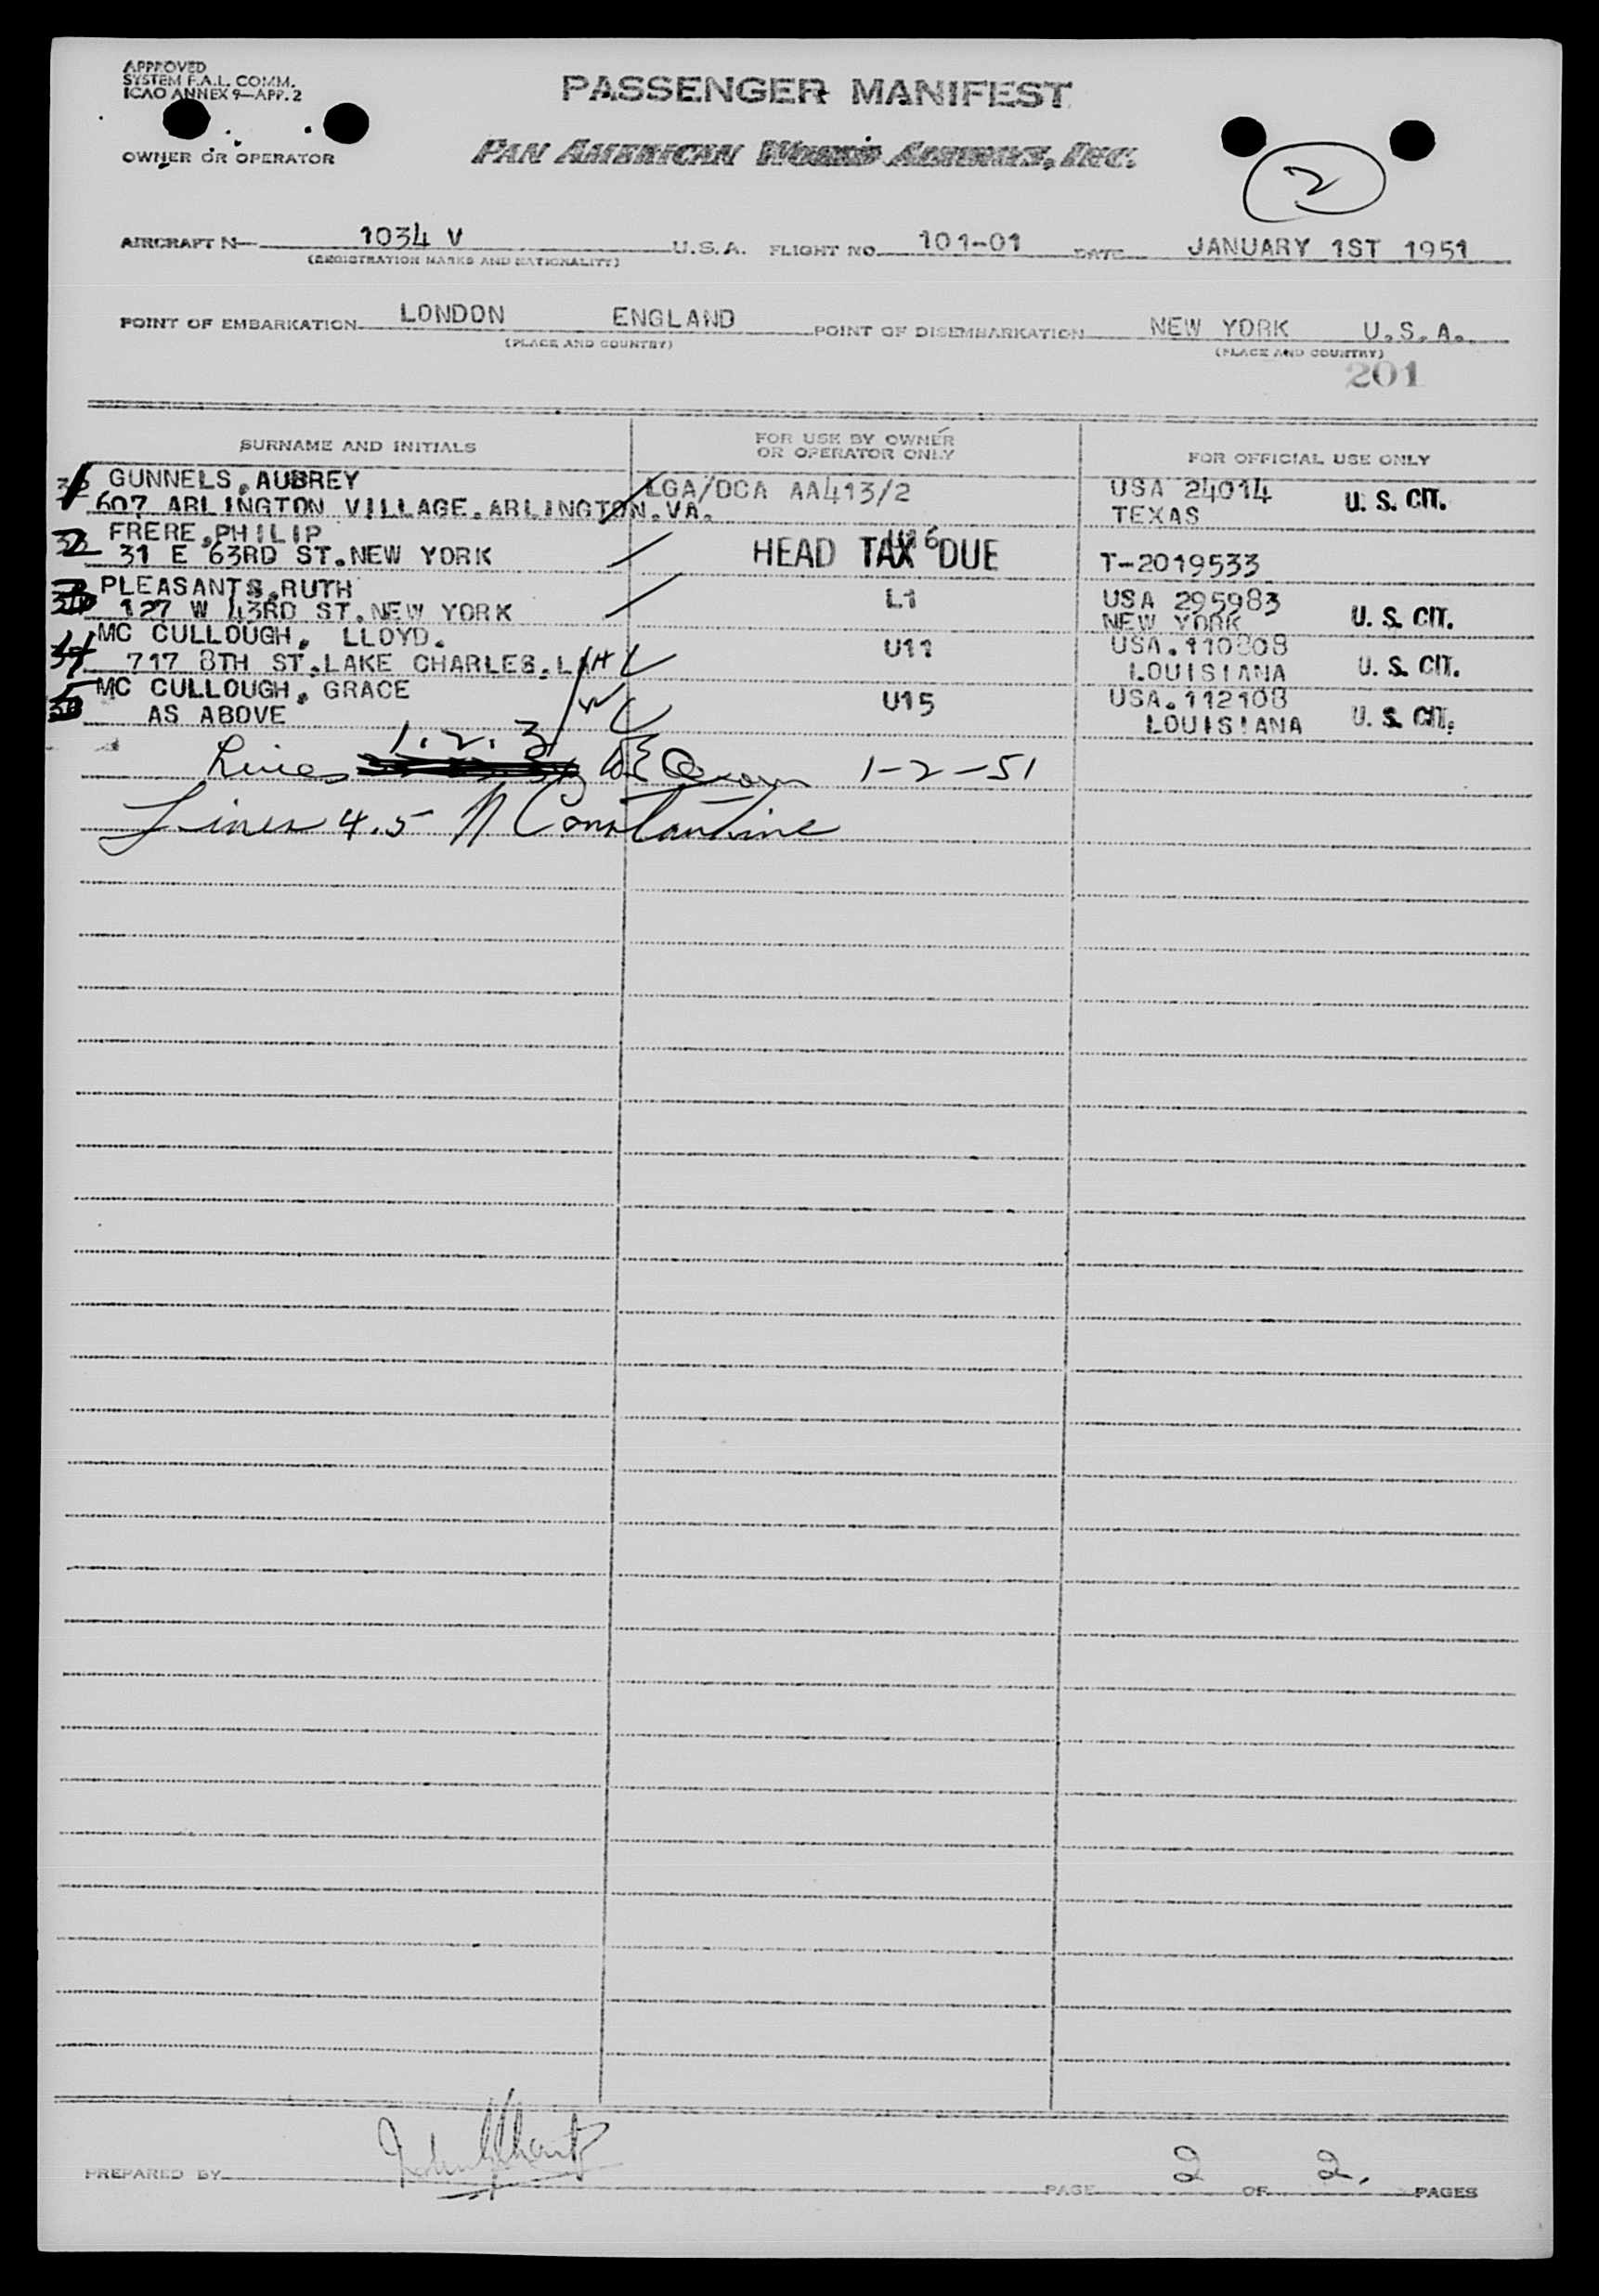 APPROVED
SYSTEM F.A.L. COMM.
ICAO ANNEX 9—APP. 2
PASSENGER MANIFEST
OWNER OR OPERATOR
PAN AMERICAN WORLD AIRWAYS, INC.
2
AIRCRAFT N— 1034 V U.S.A. FLIGHT NO. 101-01 DATE JANUARY 1ST 1951
(REGISTRATION MARKS AND NATIONALITY)
POINT OF EMBARKATION LONDON ENGLAND POINT OF DISEMBARKATION NEW YORK U.S.A.
(PLACE AND COUNTRY) (PLACE AND COUNTRY)
201
SURNAME AND INITIALS FOR USE BY OWNER OR OPERATOR ONLY FOR OFFICIAL USE ONLY
1 GUNNELS, AUBREY LGA/DCA AA413/2 USA 24014 U. S. CIT.
607 ARLINGTON VILLAGE. ARLINGTON. VA. TEXAS
2 FRERE, PHILIP
31 E 63RD ST. NEW YORK HEAD TAX DUE T-2019533
3 PLEASANTS, RUTH L1 USA 295983
127 W 43RD ST. NEW YORK NEW YORK U. S. CIT.
4 MC CULLOUGH, LLOYD. U11 USA.110808
717 8TH ST. LAKE CHARLES. LA H LOUISIANA U. S. CIT.
5 MC CULLOUGH, GRACE U15 USA.112108
AS ABOVE W LOUISIANA U. S. CIT.
Lines 1.2.3 1-2-51
Lines 4.5 N Constantine
PREPARED BY
PAGE 2 OF 2. PAGES